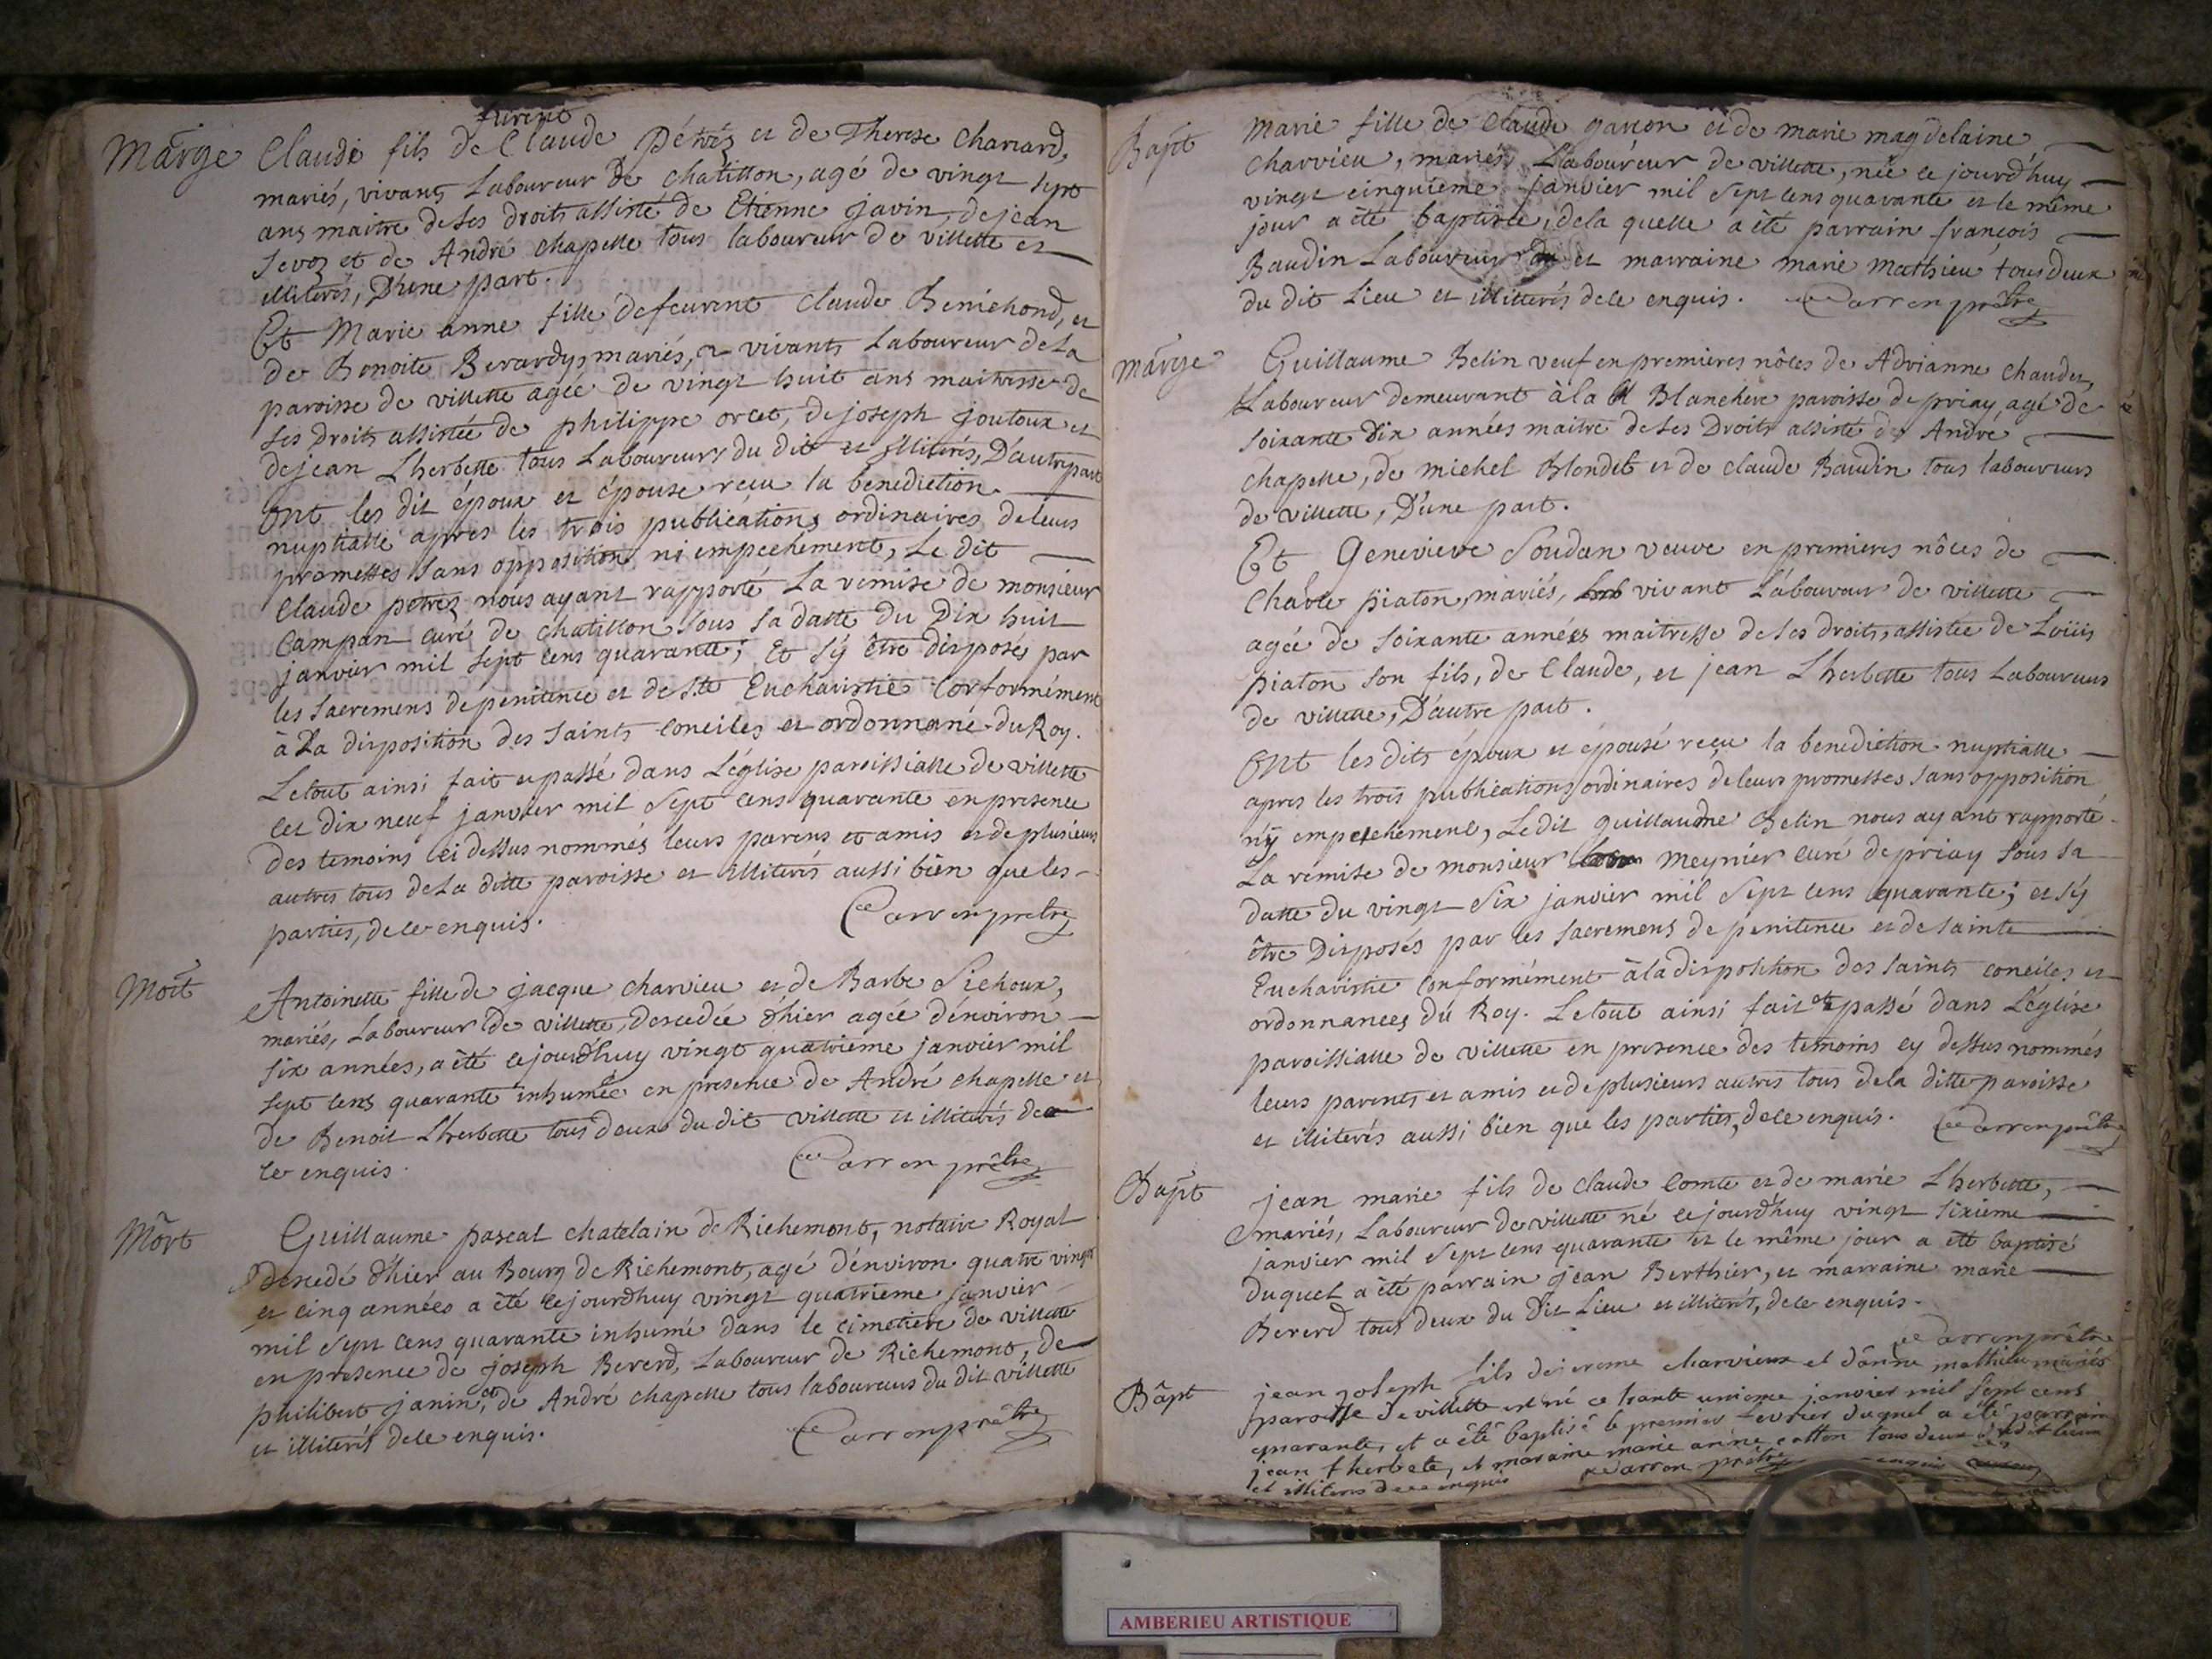 furent
Marge Claude fils de Claude Pétréz et de Therese Charnard,
mariés, vivants Laboureur de chatillon, agé de vingt sept
ans maitre deses droits assisté de Etienne Javin, de jean
Sevoz et de André chapelle tous laboureur de villette et
illiterés, D'une part.
Et Marie anne fille defeurent Claude Benichond, et
de Benoite Berardy, mariés, vivants Laboureur dela
paroisse de villette agée de vingt huit ans maitresse de
ses droits assistée de philippe orcet, de joseph joutoux et
dejean Lherbette tous Laboureurs du dit et illiterés, D'autre part
Ont les dit époux et épouse reçu la benediction
nuptialle apres les trois publications ordinaires deleurs
promesses sans opposition ni empechement, Le dit
Claude petréz nous ayant rapporté La remise de monsieur
Campan curé de chatillon sous sa datte du Dix huit
janvier mil sept cens quarante; Et s'ÿ être disposés par
les sacremens depenitence et de Ste Eucharistie Conformément
à La disposition des saints conciles et ordonnané du Roy.
Letout ainsi fait et passé dans L'église paroissialle de villette
cet dix neuf janvier mil sept cens quarante en presence
des temoins ci dessus nommés leurs parens et amis et de plusieurs
autres tous dela ditte paroisse et illiterés aussi bien que les
parties, dece enquis. Carron prêtre
Mort Antoinette fille de jacque charvieu et de Barbe Sichoux,
mariés, Laboureur de villette, descedée d'hier agée d'environ
six années, a été cejourd'huy vingt quatrième janvier mil
sept cens quarante inhumée en presence de André chapelle et
de Benoit Lherbette tous deux du dit villette et illiterés de
ce enquis. Carron prêtre
Mort Guillaume pascal chatelain de Richemont, notaire Royal
descedé d'hier au Bourg de Richemont, agé d'environ quatre vingt
et cinq années a été cejourd'huy vingt quatrieme janvier
mil sept cens quarante inhumé dans le cimetiere de villette
en presence de joseph Bererd, Laboureur de Richemont, de
philibert janin, et de André chapelle tous laboureurs du dit villette
et illiterés dece enquis. Carron prêtre
Bapt Marie fille de Claude garson et de marie magdelaine
charvieu, mariés, Laboureur de villette, née ce jourd'huy
vingt cinquieme janvier mil sept cens quarante et le même
jour a été baptisée, dela quelle a été parrain françois
Baudin Laboureur et marraine marie mathieu tous deux
du dit Lieu et illitterés dece enquis. Carron prêtre
Marge Guillaume Belin veuf en premieres nôces de Adrianne chaudet,
Laboureur demeurant à la Blanchere paroisse de priay, agé de
soixante Dix années maitre de ses Droits assisté de André
chapelle, de michel Blondet et de claude Baudin tous laboureurs
de villette, D'une part.
Et Genevieve Soudan veuve en premieres nôces de
Charle piaton, mariés, vivant Laboureur de villette
agée de soixante années maitresse de ses droits, assistée de Loüis
piaton son fils, de Claude, et jean Lherbette tous Laboureurs
de villette, D'autre part.
Ont les dits époux et épouse reçu la benediction nuptialle
apres les trois publications ordinaires deleurs promesses sans opposition
nÿ empechement, Ledit guillaume Belin nous ayant rapporté
La remise de monsieur Meynier curé de priay sous sa
datte du vingt six janvier mil sept cens quarante; et s'ÿ
être Disposés par les sacremens de penitence et de sainte
Eucharistie conformément à la disposition des saints conciles et
ordonnances du Roy. Letout ainsi fait et passé dans L'église
paroissialle de villette en presence des temoins cy dessus nommés
leurs parents et amis et de plusieurs autres tous dela ditte paroisse
et illiterés aussi bien que les parties, dece enquis. Carron prêtre
Bapt jean marie fils de claude comte et de marie Lherbette,
mariés, Laboureur de villette né cejourd'huy vingt sixieme
janvier mil sept cens quarante et le même jour a été baptisé
duquel a été parrain jean Berthier, et marraine marie
Bererd tous deux du Dit Lieu et illiterés, dece enquis.
Carron prêtre
Bâpt jean joseph fils de jerome charvieux et d'anne mathieu mariés
paroisse de villette est né ce trante unieme janvier mil sept cens
quarante, et a été baptisé le premier fevrier duquel a été parrain
jean lherbete, et maraine marie anne cotton tous deux dudit lieu
et illiteres de ce enquis Carron prêtre
AMBERIEU ARTISTIQUE